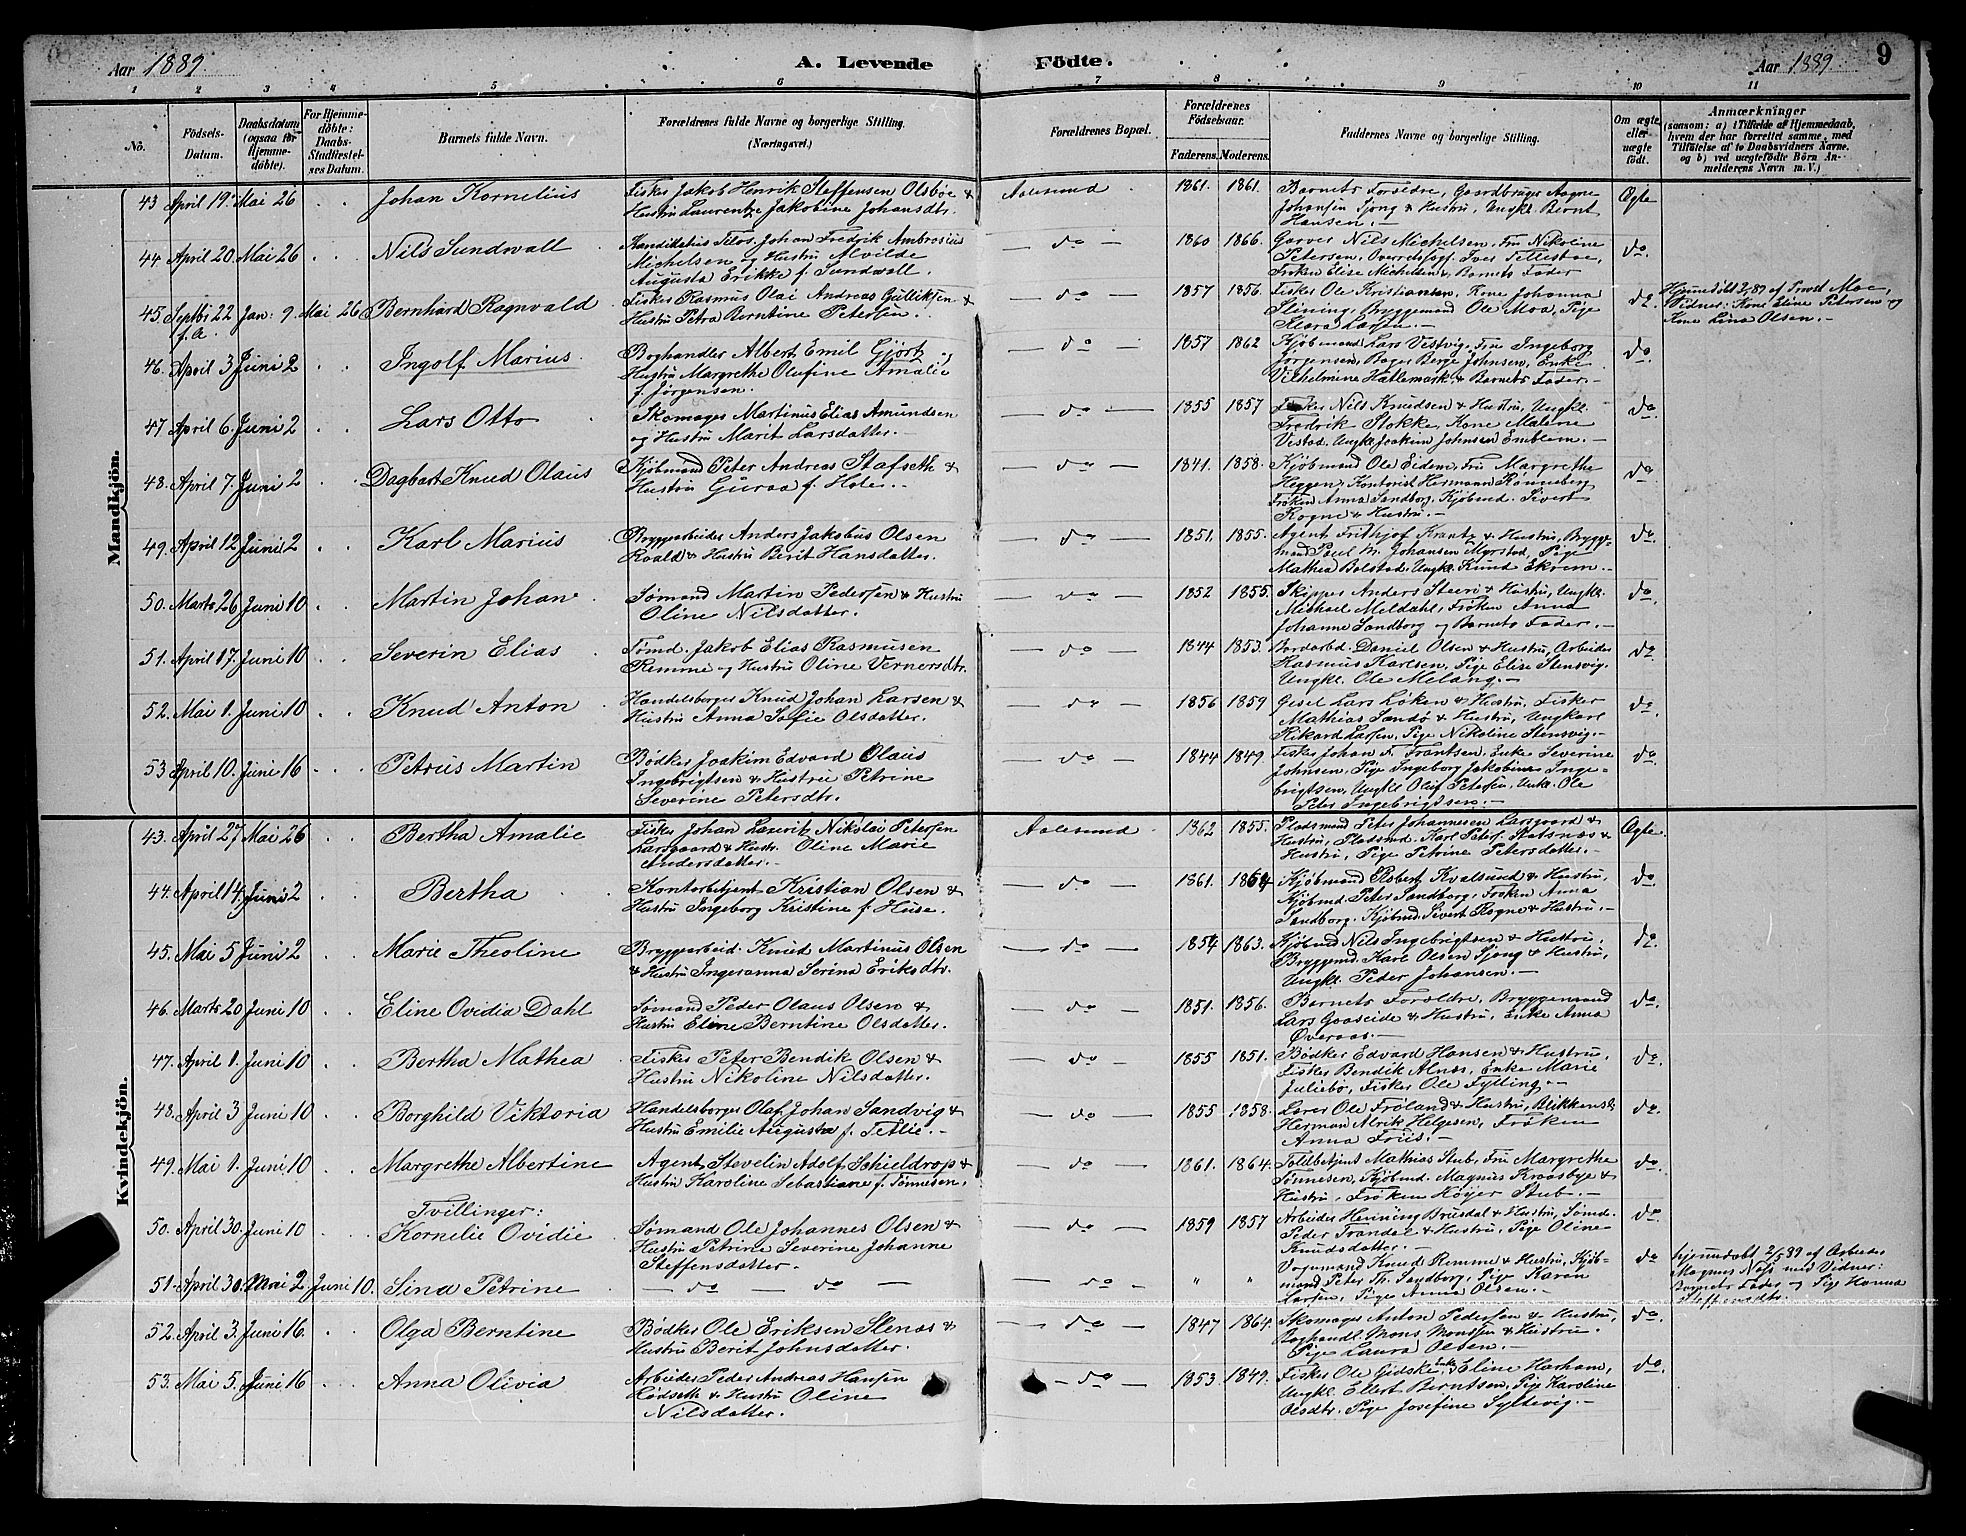 Aar 1889
A. Levende
Födte.
Aar 1889
9
1 2 3 4 5 6 7 8 9 10 11
No.
Födsels-Datum.
Daabsdatum (ogsaa for Hjemme-döbte).
For Hjemme-döbte: Daabs-Stadfæstel-ses Datum.
Barnets fulde Navn.
Forældrenes fulde Navne og borgerlige Stilling. (Næringsvei.)
Forældrenes Bopæl.
Forældrenes Födselsaar.
Faderens. Moderens.
Faddernes Navne og borgerlige Stilling.
Om ægte eller uægte födt.
Anmærkninger
(saasom: a) i Tilfælde af Hjemmedaab,
hvem der har forrettet samme, med
Tilföielse af to Daabsvidners Navne.
og b) ved uægtefödte Börn An-
melderens Navn m. V.)
Mandkjön.
43 April 19. Mai 26 Johan Kornelius
Fisker Jakob Henrik Steffensen Olsböe &
Hustru Laurentze Jakobine Johansdtr.
Aalesund 1861. 1861.
Barnets Forældre, Gaardbruger Aagne
Johansen Sjong & Hustru, Ungkl. Bernt
Hansen.
Ægte
44. April 20. Mai 26 Nils Sundwall
Kandidatus Filos. Johan Fredrik Ambrosius
Michelsen og Hustru Alvilde
Augusta Erikke f. Sundwall.
do 1860 1866.
Garver Nils Michelsen, Fru Nikoline
Petersen, Overretssagf. Iver Tillestoe,
Fröken Elise Michelsen & Barnets Fader
do.
45. Septbr 22 f.A. Jan: 9. Mai 26 Bernhard Ragnvald
Fisker Rasmus Olai Andreas Gulliksen &
Hustru Petra Berntine Petersen.
do 1857 1856.
Fisker Ole Kristiansen, Kone Johanna
Slining, Bryggemand Ole Moa, Pige
Klara Larsen.
do.
Hjemmedöbt 9/1 89 af Provst Moe,
Vidner: Kone Eline Petersen og
Kone Lina Olsen.
46. April 3 Juni 2 Ingolf Marius.
Boghandler Albert Emil Gjört &
Hustru Margrethe Olufine Amalie
f. Jörgensen.
do 1857 1862
Kjöbmand Lars Vestvig, Fru Ingeborg
Jörgensen, Bager Berge Johnsen, Enke
Vilhelmine Hatlemark & Barnets Fader.
do
47 April 6. Juni 2 Lars Otto
Skomager Martinus Elias Amundsen
og Hustru Marit Larsdatter.
do 1855 1857
Fisker Nils Knudsen & Hustru, Ungkl.
Fredrik Stokke, Kone Malene
Vestad, Ungkl. Joakim Johnsen Emblem.
do.
48. April 7. Juni 2 Dagbart Knud Olaus
Kjöbmand Peter Andreas Stafseth &
Hustru Guraa f. Hole.
do 1841. 1858.
Kjöbmand Ole Eidem, Fru Margrethe
Heggen, Kontorist Hermann Rönneberg,
Fröken Anna Sandborg, Kjöbmd. Sivert
Rogne & Hustru.
do
49. April 12 Juni 2 Karl Marius
Bryggearbeider Anders Jakobus Olsen
Roald & Hustru Berit Hansdatter.
do 1851. 1855.
Agent Frithjof Krantz & Hustru, Brygge-
mand Paul M. Johansen Myrstad, Pige
Mathea Bolstad, Ungkl. Knud Ekrem.
do.
50. Marts 26 Juni 10 Martin Johan
Sömand Martin Pedersen & Hustru
Oline Nilsdatter.
do 1852 1855.
Skipper Anders Steerö & Hustru, Ungkl.
Michael Meldahl, Fröken Anna
Johanne Sandborg og Barnets Fader.
do.
51. April 17. Juni 10 Severin Elias
Tömd. Jakob Elias Rasmusen
Remme og Hustru Oline Vernersdtr.
do 1844 1853.
Bordarbd. Daniel Olsen & Hustru, Arbeider
Rasmus Karlsen, Pige Elise Stensvig,
Ungkl. Ole Melang.
do
52. Mai 1. Juni 10 Knud Anton
Handelsborger Knud Johan Larsen &
Hustru Anna Sofie Olsdatter.
do 1856 1859
Gesel Lars Löken & Hustru, Fisker
Mathias Sandö & Hustru, Ungkarl
Rikard Larsen, Pige Nikoline Stensvig.
do.
53 April 10. Juni 16 Petrus Martin
Bödker Joakim Edvard Olaus
Ingebrigtsen & Hustru Petrine
Severine Petersdtr.
do 1844 1849.
Fisker Johan F. Frantsen, Enke Severine
Johnsen, Pige Ingeborg Jakobine Inge-
brigtsen, Ungkl Oluf Petersen, Unkl. Ole
Peter Ingebrigtsen.
do.
Kvindekjön.
43. April 27 Mai 26 Bertha Amalie
Fisker Johan Lauritz Nikolai Petersen
Larsgaard & Hustr. Oline Marie
Andersdatter.
Aalesund. 1862 1855.
Pladsmand Peter Johannesen Larsgaard &
Hustru, Pladsmd. Karl Peters. Slatsnæs &
Hustru, Pige Petrine Petersdatter.
Ægte.
44. April 14. Juni 2 Bertha
Kontorbetjent Kristian Olsen &
Hustru Ingeborg Kristine f. Huse.
do 1861. 1864
Kjöbmand Elbert Kvalsund & Hustru,
Kjöbmd. Peter Sandborg, Fröken Anna
Sandborg, Kjöbmd. Sivert Rogne & Hustru.
do
45. Mai 5 Juni 2 Marie Theoline
Bryggearbeid. Knud Martinus Olsen
& Hustru Ingeranna Serina Eriksdtr.
do 1854 1863.
Kjöbmd Nils Ingebrigtsen & Hustru,
Bryggmd. Karl Olsen Sjong & Hustru,
Ungkl. Peder Johansen.
do.
46. Marts 20 Juni 10 Eline Ovidia Dahl
Sömand Peder Olaus Olsen &
Hustru Eline Berntine Olsdatter.
do 1851. 1856.
Barnets Forældre, Bryggemand
Lars Gaaseide & Hustru, Enke Anna
Överaas.
do
47. April 1. Juni 10 Bertha Mathea
Fisker Peter Bendik Olsen &
Hustru Nikoline Nilsdatter.
do 1855 1851.
Bödker Edvard Hansen & Hustru,
Fisker Bendik Alnæs, Enke Marie
Juliebö, Fisker Ole Fylling.
do.
48. April 3 Juni 10 Borghild Viktoria
Handelsborger Olaf Johan Sandvig &
Hustru Emilie Augusta f. Tetlie.
do 1855 1858.
Lærer Ole Fröland & Hustru, Blikkensl.
Herman Alrik Helgesen, Fröken
Anna Friis.
do.
49. Mai 1. Juni 10 Margrethe Albertine
Agent Stevelin Adolf Schieldrop &
Hustru Karoline Sebastiane f. Tönnesen.
do 1861. 1864.
Toldbetjent Mathias Stub, Fru Margrethe
Tönnesen, Kjöbmd. Magnus Kraasbye &
Hustru, Fröken Höyer Stub.
do.
Tvillinger:
50. April 30. Juni 10 Kornelie Ovidie
Sömand Ole Johannes Olsen &
Hustru Petrine Severine Johanne
Steffensdatter.
do 1859 1857
Arbeider Henning Brusdal & Hustru, Sömd.
Peder Trandal & Hustru, Pige Oline
Knudsdatter.
do.
51. April 30. Mai 2 Juni 10. Sina Petrine
do do
do " "
Vognmand Knud Remme & Hustru, Kjöb-
mand Peter Th. Sandborg, Pige Karen
Larsen, Pige Anna Olsen.
do
hjemmedöbt 2/5 89 af Arbeider
Magnus Næs med Vidner:
Barnets Fader og Pige Hanna
Steffensdtr.
52. April 3. Juni 16. Olga Berntine
Bödker Ole Eriksen Slenæs &
Hustru Berit Johnsdatter.
do 1847 1864.
Skomager Anton Pedersen & Hustru,
Boghandl. Mons Monssen & Hustru.
Pige Laura Olsen.
do.
53. Mai 5. Juni 16 Anna Olivia
Arbeider Peder Andreas Hansen
Rödseth & Hustru Oline
Nilsdatter.
do 1853. 1849.
Fisker Ole Gidske, Enke Eline Harham,
Ungkl. Ellert Berntsen, Pige Karoline
Olsdtr. Pige Josefine Syltevig.
do.